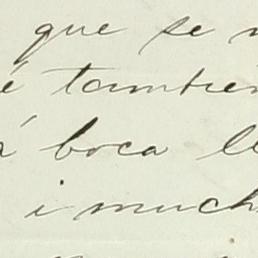 que se
é tambien
á boca
i much